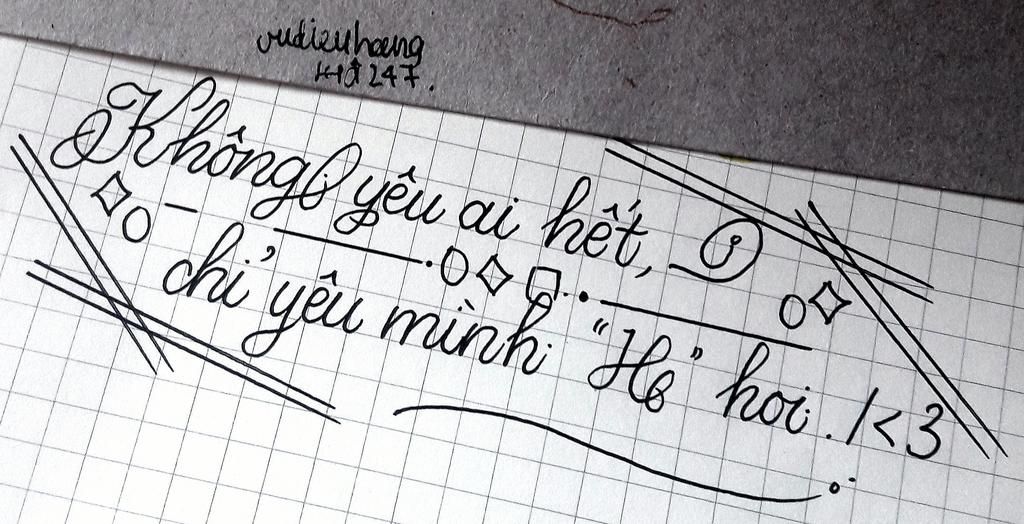 vudieuhoang
Không yêu ai hết,
chỉ yêu mình "H" hoi. /<3